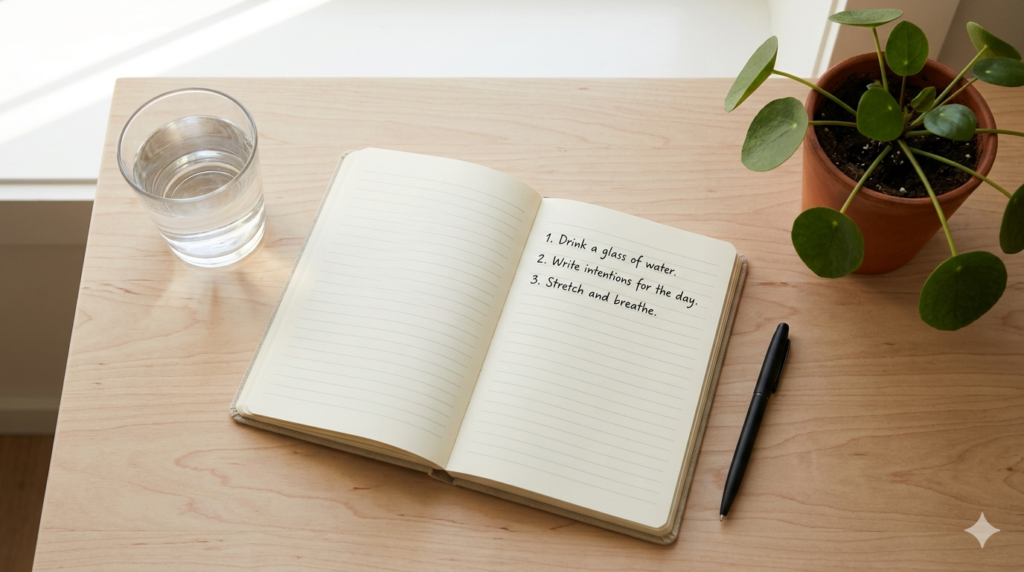 1. Drink a glass of water.
2. Write intentions for the day.
3. Stretch and breathe.